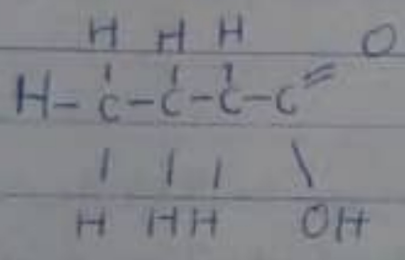 H H H O
H-C-C-C-C
H H H OH